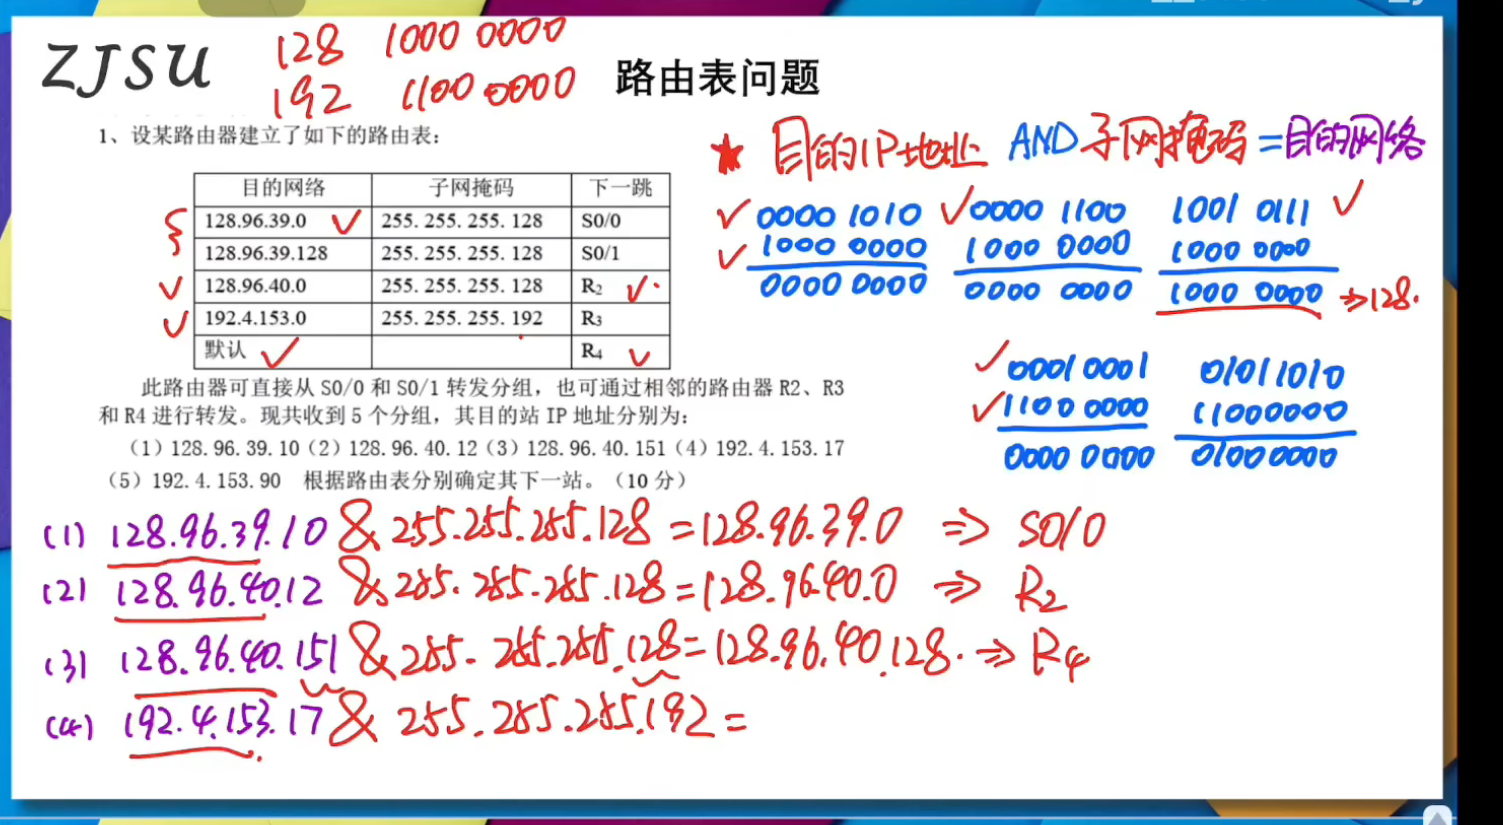 ZJSU
128 1000 0000
192 1100 0000
路由表问题
1、设某路由器建立了如下的路由表：
目的网络 子网掩码 下一跳
128.96.39.0 255.255.255.128 S0/0
128.96.39.128 255.255.255.128 S0/1
128.96.40.0 255.255.255.128 R2
192.4.153.0 255.255.255.192 R3
默认 R4
此路由器可直接从 S0/0 和 S0/1 转发分组，也可通过相邻的路由器 R2、R3
和 R4 进行转发。现共收到 5 个分组，其目的站 IP 地址分别为：
（1）128.96.39.10（2）128.96.40.12（3）128.96.40.151（4）192.4.153.17
（5）192.4.153.90 根据路由表分别确定其下一站。（10 分）
★ 目的IP地址 AND 子网掩码=目的网络
0000 1010 0000 1100 1001 0111
1000 0000 1000 0000 1000 0000
0000 0000 0000 0000 1000 0000 ⇒128.
00010001 01011010
11000000 11000000
0000 0000 01000000
(1) 128.96.39.10 & 255.255.255.128 =128.96.39.0 ⇒ S0/0
(2) 128.96.40.12 & 255.255.255.128=128.96.40.0 ⇒ R2
(3) 128.96.40.151 & 255.255.255.128=128.96.40.128. ⇒ R4
(4) 192.4.153.17 & 255.255.255.192 =